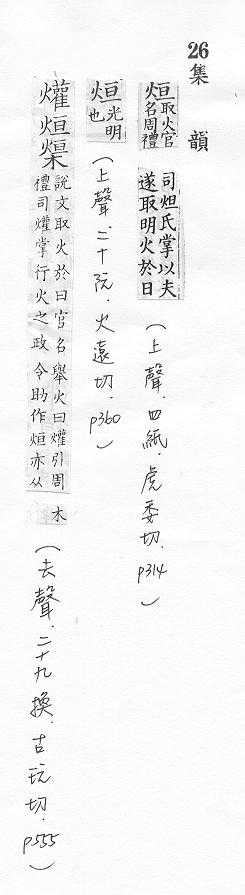 26
集韻
烜
取火官
名周禮
司烜氏掌以夫
遂取明火於日
(上聲.四紙.虎委切.p314)
烜
光明
也
(上聲.二十阮.火遠切.p360)
爟烜
說文取火於日官名舉火曰爟引周
禮司爟掌行火之政令助作烜亦从
木
(去聲.二十九換.古玩切.p555)